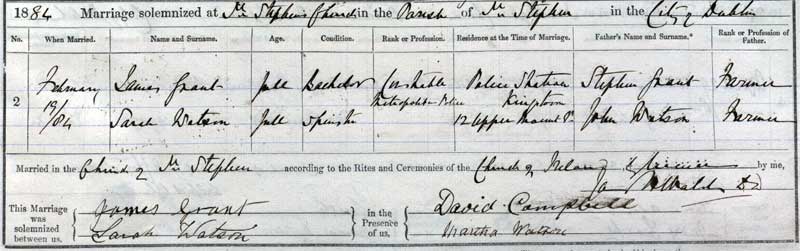 1884 Marriage solemnized at St Stephens Church in the Parish of St Stephen in the City of Dublin
No. When Married. Name and Surname. Age. Condition. Rank or Profession. Residence at the Time of Marriage. Father's Name and Surname.* Rank or Profession of Father.
February James Grant full Bachelor Constable Police Station Stephen Grant Farmer
2 19/84 Metropolitan Police Kingstown
Sarah Watson full Spinster 12 Upper Mount St John Watson Farmer
Married in the Church of St Stephen according to the Rites and Ceremonies of the Church of Ireland by me,
This Marriage was solemnized between us,
James Grant
Sarah Watson
in the Presence of us,
David Campbell
Martha Watson